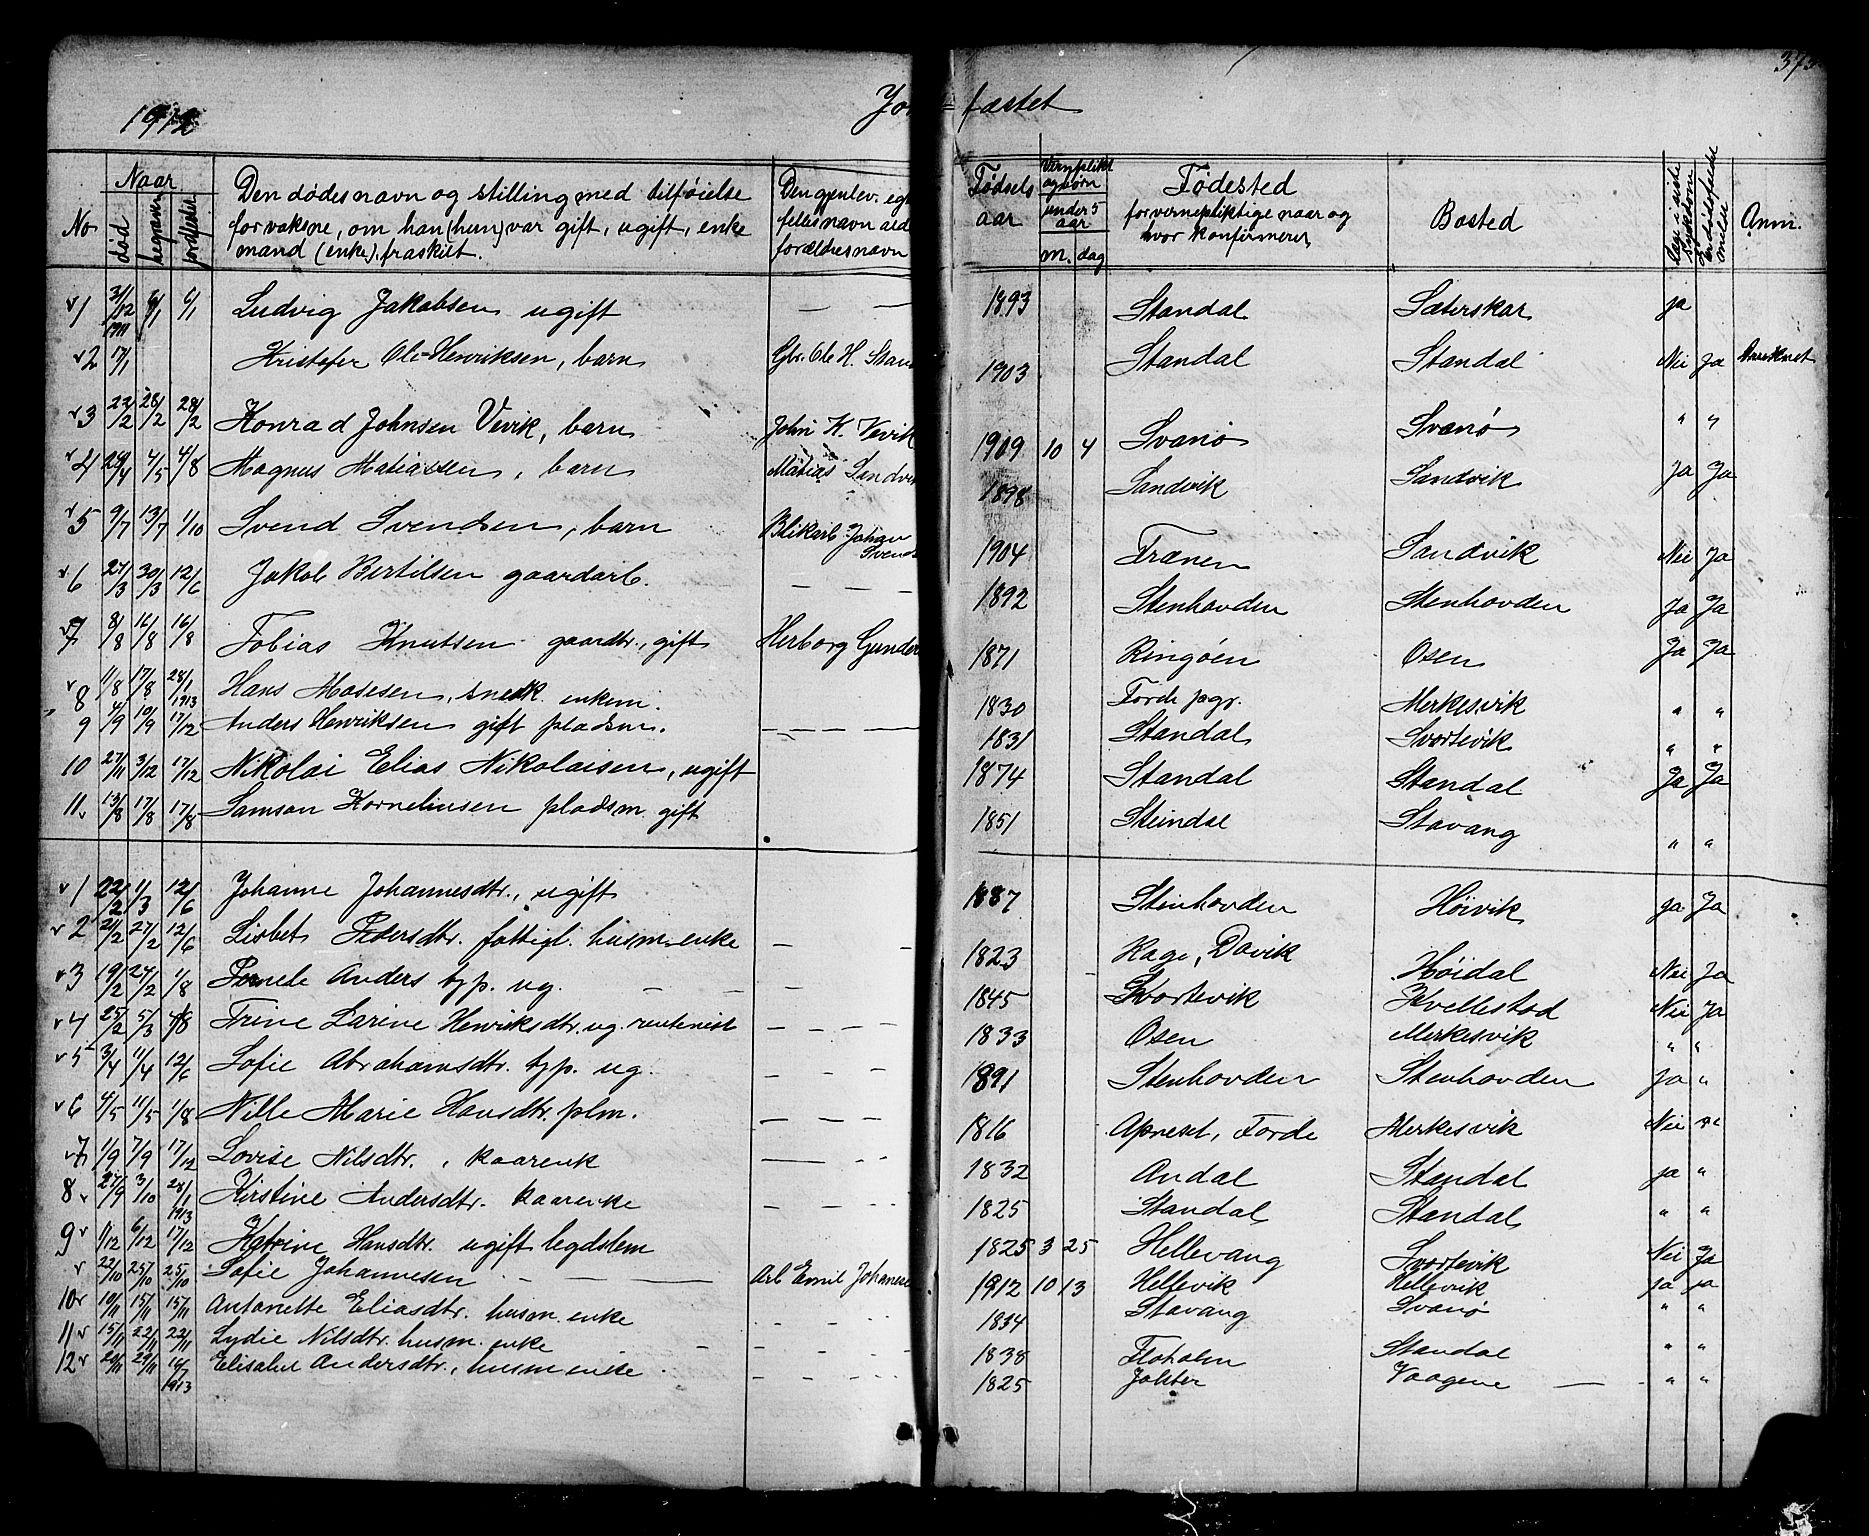 373
1912 Jordfæstet
No. Naar død begraven jordfæstet Den dødes navn og stilling med tilføielse for voksne, om han (hun) var gift, ugift, enkemand (enke), fraskilt. Den gjenlev. forældres navn Fødsels aar under 5 aar m. dag Fødested for vernepliktige naar og hvor konfirmeret Bosted Anm.
1 31/12 1911 6/1 6/1 Ludvig Jakobsen ugift — — 1893 Standal Sæterskar ja
2 17/1 Kristofer Ole Henriksen, barn Gbr. Ole H. Stan 1903 Standal Standal Nei Ja Druknet
3 22/2 28/2 28/2 Konrad Johnsen Vevik, barn John K. Vevik 1909 10 4 Svanø Svanø " "
4 24/4 4/5 4/8 Magnus Matiassen, barn Matias Sandvik 1898 Sandvik Sandvik Ja Ja
5 9/7 13/7 1/10 Svend Svendsen, barn Blikarb. Johan Svends 1904 Frænen Sandvik Nei Ja
6 27/3 30/3 12/6 Jakob Bertilsen gaardarb. — — — 1892 Stenhovden Stenhovden Ja Ja
7 8/8 16/8 16/8 Tobias Knutsen gaardbr., gift Herborg Gunder 1871 Ringøen Osen Ja Ja
8 11/8 17/8 28/1 1913 Hans Mosesen, snedk. enkem. 1830 Førde pgr. Merkesvik " "
9 4/9 10/9 17/12 Anders Henriksen gift pladsm. — — — 1831 Standal Svortevik " "
10 27/11 3/12 17/12 Nikolai Elias Nikolaisen, ugift 1874 Standal Standal Ja Ja
11 13/8 17/8 17/8 Samson Kornelinsen pladsm. gift 1851 Steindal Stavang " "
1 22/2 1/3 12/6 Johanne Johannesdtr., ugift 1887 Stenhovden Høivik ja Ja
2 21/2 27/2 12/6 Lisbet Pedersdtr. fattigl. husm. enke — — 1823 Hage, Davik Høidal Nei Ja
3 19/2 24/2 1/8 Anders typ. ug. — — — 1845 Svortevik Kvellestad Nei Ja
4 25/2 5/3 4/8 Trine Larine Henriksdtr. ug. rentenist — — — — 1833 Osen Merkesvik " "
5 3/4 11/4 12/6 Sofie Abrahamsdtr. typ. ug. — — — 1891 Stenhovden Stenhovden Ja "
6 4/5 11/5 1/8 Nille Marie Hansdtr. plm. — — — — 1816 Apneset, Førde Merkesvik Nei "
7 1/9 7/9 17/12 Lovise Nilsdtr., kaarenk — — — 1832 Andal Standal ja "
8 27/9 3/10 28/1 1913 Kirstine Andersdtr. kaarenke — — — — 1825 Standal Standal " "
9 1/12 6/12 17/12 Katrine Hansdtr. ugift legdslem 1825 3 25 Hellevang Svortevik Nei Ja
22/10 25/10 25/10 Sofie Johannesen — — — Arb Emil Johannese 1912 10 13 Hellevik Hellevik ja ja
10 10/11 15/11 15/11 Antonette Eliasdtr. husm. enke 1834 Stavang Svanø " "
11 15/11 22/11 22/11 Lydie Nilsdtr. husm. enke — — — 1838 Floholm Standal " "
12 24/11 29/11 16/7 1913 Elisabet Andersdtr., husm enke — — — 1825 Jølster Vaagene — " "